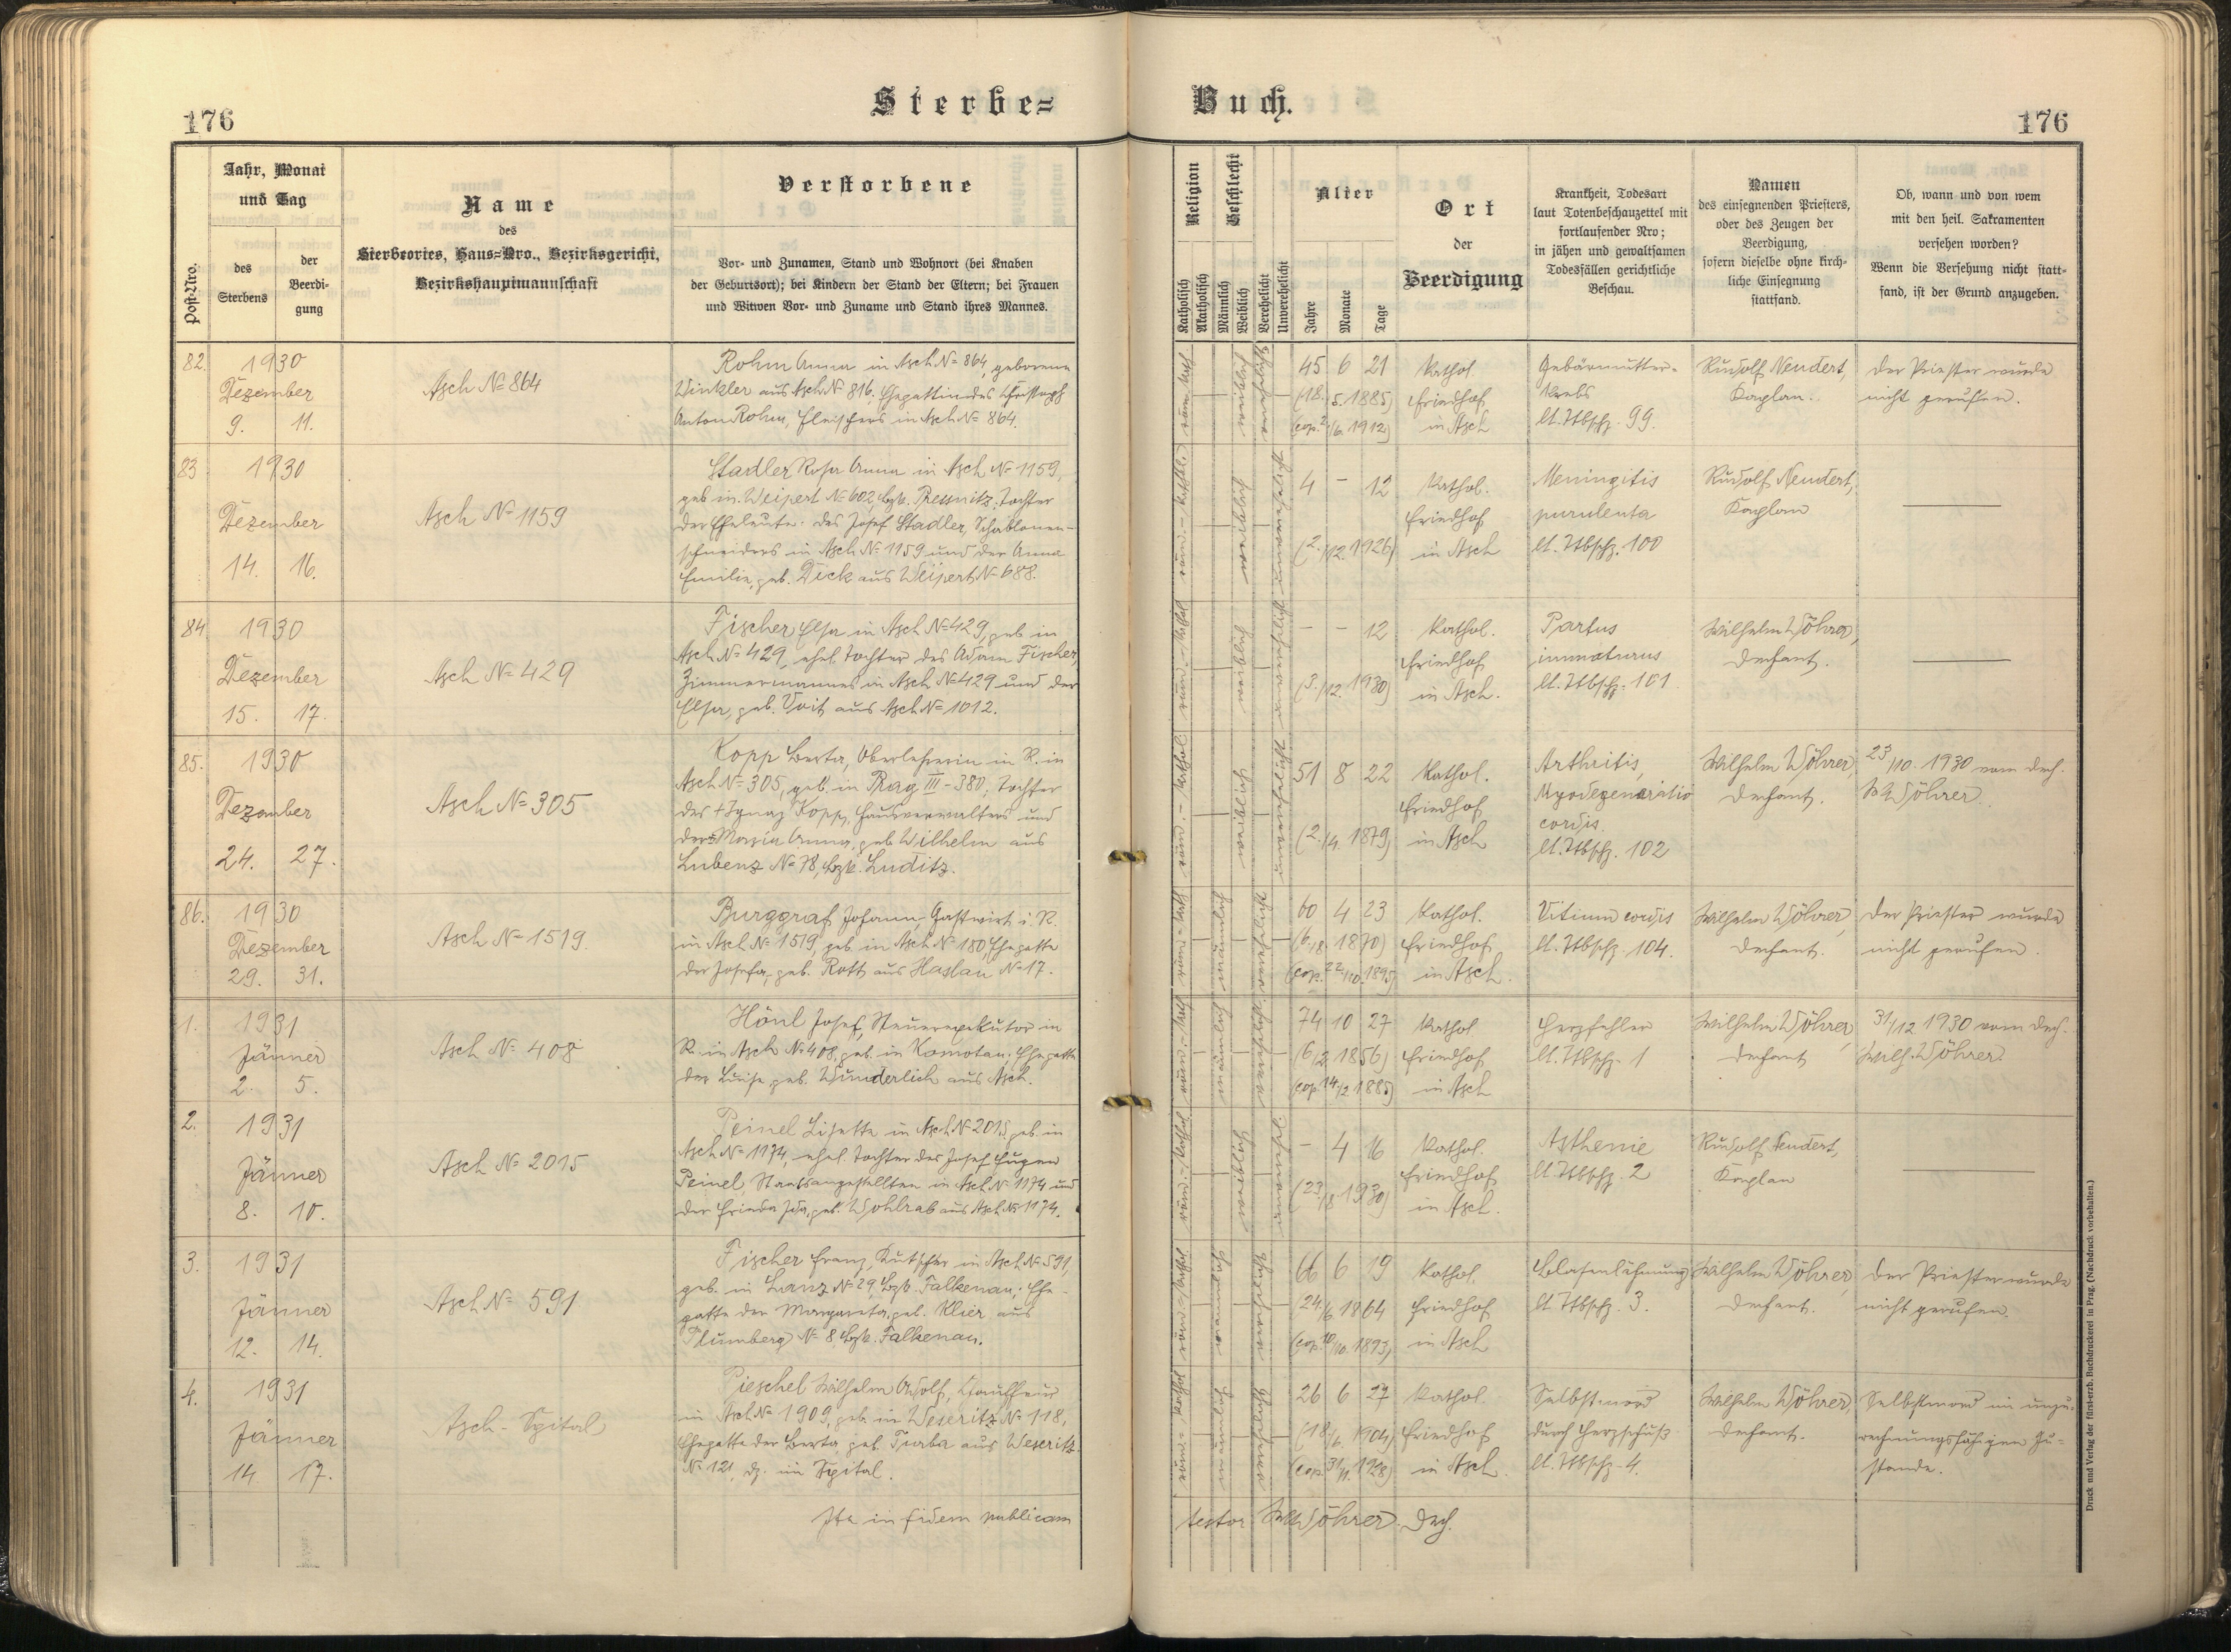 176
Sterbe=
Buch.
176
Post-Nro.
Jahr, Monat
und Tag
des
Sterbens
der
Beerdi-
gung
Name
des
Sterbeortes, Haus=Nro., Bezirksgericht,
Bezirkshauptmannschaft
Verstorbene
Vor- und Zunamen, Stand und Wohnort (bei Knaben
der Geburtsort); bei Kindern der Stand der Eltern; bei Frauen
und Witwen Vor- und Zuname und Stand ihres Mannes.
Religion
Katholisch
Akatholisch
Geschlecht
Männlich
Weiblich
Verehelicht
Unverehelicht
Alter
Jahre
Monate
Tage
Ort
der
Beerdigung
Krankheit, Todesart
laut Totenbeschauzettel mit
fortlaufender Nro;
in jähen und gewaltsamen
Todesfällen gerichtliche
Beschau.
Namen
des einsegnenden Priesters,
oder des Zeugen der
Beerdigung,
sofern dieselbe ohne kirch-
liche Einsegnung
stattfand.
Ob, wann und von wem
mit den heil. Sakramenten
versehen worden?
Wenn die Versehung nicht statt-
fand, ist der Grund anzugeben.
82. 1930
Dezember
9. 11.
Asch № 864
Rohm Anna in Asch № 864, geborene
Winkler aus Asch № 816, Ehegattin des Christoph
Anton Rohm, Fleischers in Asch № 864.
röm. kath. weiblich verehelicht
45 6 21
(18./5. 1885)
(cop. 2/6. 1912)
Kathol.
Friedhof
in Asch
Gebärmutter-
krebs
lt. Ttbschz. 99.
Rudolf Neudert,
Kaplan.
Der Priester wurde
nicht gerufen.
83 1930
Dezember
14. 16.
Asch № 1159
Stadler Rosa Anna in Asch № 1159,
geb. in Weipert № 602, Bzk. Pressnitz, Tochter
der Eheleute: des Josef Stadler, Schablonen-
schneiders in Asch № 1159 und der Anna
Emilie, geb. Dick aus Weipert № 688.
röm.-kathol. weiblich unverehelicht
4 - 12
(2./12. 1926)
Kathol.
Friedhof
in Asch
Meningitis
purulenta
lt. Ttbschz. 100
Rudolf Neudert,
Kaplan
84 1930
Dezember
15. 17.
Asch № 429
Fischer Elsa in Asch № 429, geb. in
Asch № 429, ehel. Tochter des Adam Fischer,
Zimmermannes in Asch № 429 und der
Elsa, geb. Voit aus Asch № 1012.
röm.-kathol weiblich unverehelicht
- - 12
(3./12. 1930)
Kathol.
Friedhof
in Asch.
Partus
immaturus
lt. Ttbschz. 101
Wilhelm Wöhrer,
Dechant.
85. 1930
Dezember
24. 27.
Asch № 305
Kopp Berta, Oberlehrerin in R. in
Asch № 305, geb. in Prag III - 380, Tochter
des † Ignaz Kopp, Hausverwalters und
der Maria Anna, geb. Wilhelm aus
Lubenz № 78, Bzk. Luditz.
röm.-kathol weiblich unverehelicht
51 8 22
(2./4. 1879)
Kathol.
Friedhof
in Asch
Arthritis,
Myodegeneratio
cordis.
lt. Ttbschz. 102
Wilhelm Wöhrer,
Dechant.
23/10. 1930 vom Dech.
W. Wöhrer.
86. 1930
Dezember
29. 31.
Asch № 1519.
Burggraf Johann, Gastwirt i. R.
in Asch № 1519, geb. in Asch № 180, Ehegatte
der Josefa, geb. Rott aus Haslau № 17.
röm.-kath männlich verehelicht
60 4 23
(6/8 1870)
(cop. 22/10. 1895)
Kathol.
Friedhof
in Asch.
Vitium cordis
lt. Ttbschz. 104.
Wilhelm Wöhrer,
Dechant.
Der Priester wurde
nicht gerufen.
1. 1931
Jänner
2. 5.
Asch № 408
Hönl Josef, Steuerexekutor in
R. in Asch № 408, geb. in Komotau, Ehegatte
der Luise, geb. Wunderlich aus Asch.
röm.-kath männlich verehelicht
74 10 27
(6/2 1856)
(cop. 14/2 1885)
Kathol
Friedhof
in Asch
Herzfehler
lt. Ttbschz. 1
Wilhelm Wöhrer,
Dechant
31/12 1930 vom Dech.
Wilh. Wöhrer.
2. 1931
Jänner
8. 10.
Asch № 2015
Peinel Lisette in Asch № 2015, geb. in
Asch № 1174, ehel. Tochter des Josef Eugen
Peinel, Staatsangestellten in Asch № 1174 und
der Frieda Ida, geb. Wohlrab aus Asch № 1174.
röm.-kathol weiblich unverehel
- 4 16
(23./8 1930)
Kathol.
Friedhof
in Asch.
Asthenie
lt. Ttbschz. 2
Rudolf Neudert,
Kaplan
3. 1931
Jänner
12. 14.
Asch № 591
Fischer Franz, Kutscher in Asch № 591,
geb. in Lanz № 29, Bzk. Falkenau, Ehe-
gatte der Margareta, geb. Klier aus
Plumberg № 8, Bzk. Falkenau.
röm.-kathol männlich verehelicht
66 6 19
24./6 1864
(cop. 10/10. 1893)
Kathol.
Friedhof
in Asch
Blasenlähmung
lt. Ttbschz. 3.
Wilhelm Wöhrer,
Dechant.
Der Priester wurde
nicht gerufen.
4. 1931
Jänner
14. 17.
Asch - Spital
Pieschel Wilhelm Adolf,
in Asch № 1909, geb. in Weseritz № 118,
Ehegatte der Berta, geb. Turba aus Weseritz
№ 121, dz. im Spital.
röm.-kathol männlich verehelicht
26 6 27
(18/6. 1904)
(cop. 31/11. 1928)
Kathol.
Friedhof
in Asch.
Selbstmord
durch Herzschuß
lt. Ttbschz. 4.
Wilhelm Wöhrer,
Dechant.
Selbstmord im unzu-
rechnungsfähigen Zu-
stande.
Ita in fidem publicam
testor Wilh Wöhrer Dech.
Druck und Verlag der fürst-erzb. Buchdruckerei in Prag. (Nachdruck vorbehalten.)